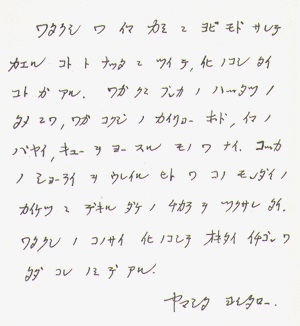 ワタクシ ワ イマ カミ ニ ヨビ モド サレテ
カエル コト ト ナッタ ニ ツイテ, イヒ ノコシ タイ
コト ガ アル. ワガ クニ ブンカ ノ ハッタツ ノ
タメ ニワ, ワガ コクジ ノ カイリョー ホド, イマ ノ
バヤイ, キュー ヲ ヨースル モノ ワ ナイ. コッカ
ノ ショーライ ヲ ウレイル ヒト ワ コノ モンダイ ノ
カイケツ ニ デキル ダケ ノ チカラ ヲ ツクサレ タイ.
ワタクシ ノ コノサイ イヒ ノコシテ オキタイ イチゴン ワ
タダ コレ ノミ デ アル.
ヤマシタ ヨシタロー.